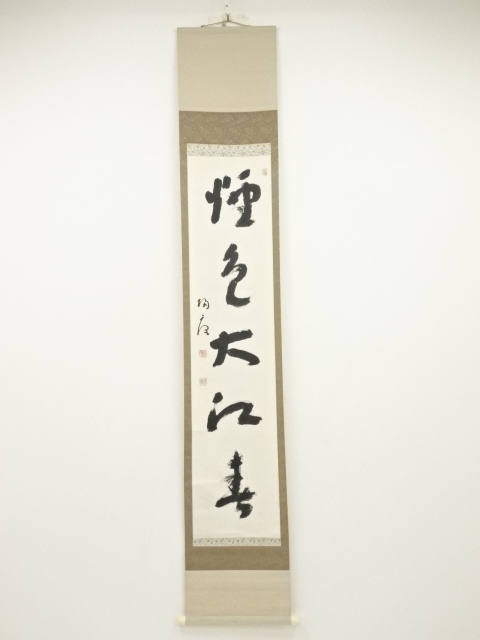 煙色大江春